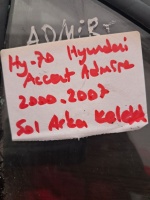 ADMİR
Hy-70 Hyundai
Accent Admire
2000-2007
Sol Arka